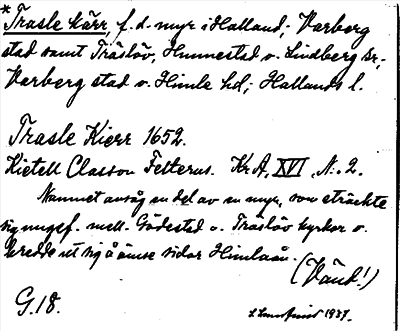 * Trasle kärr, f. d. myr i Halland; Varberg
stad samt Träslöv, Hunnestad o. Lindberg sr,
Varberg stad o. Himle hd; Hallands l.
Trasle Kierr 1652.
Kietell Classon Felterus. Kr A, XVI, N: 2.
Namnet avsåg en del av en myr, som sträckte
sig ungef. mell. Gödestad o. Träslöv kyrkor o.
bredde ut sig å ömse sidor Himleån.
(Vänd!)
G. 18.
1937.